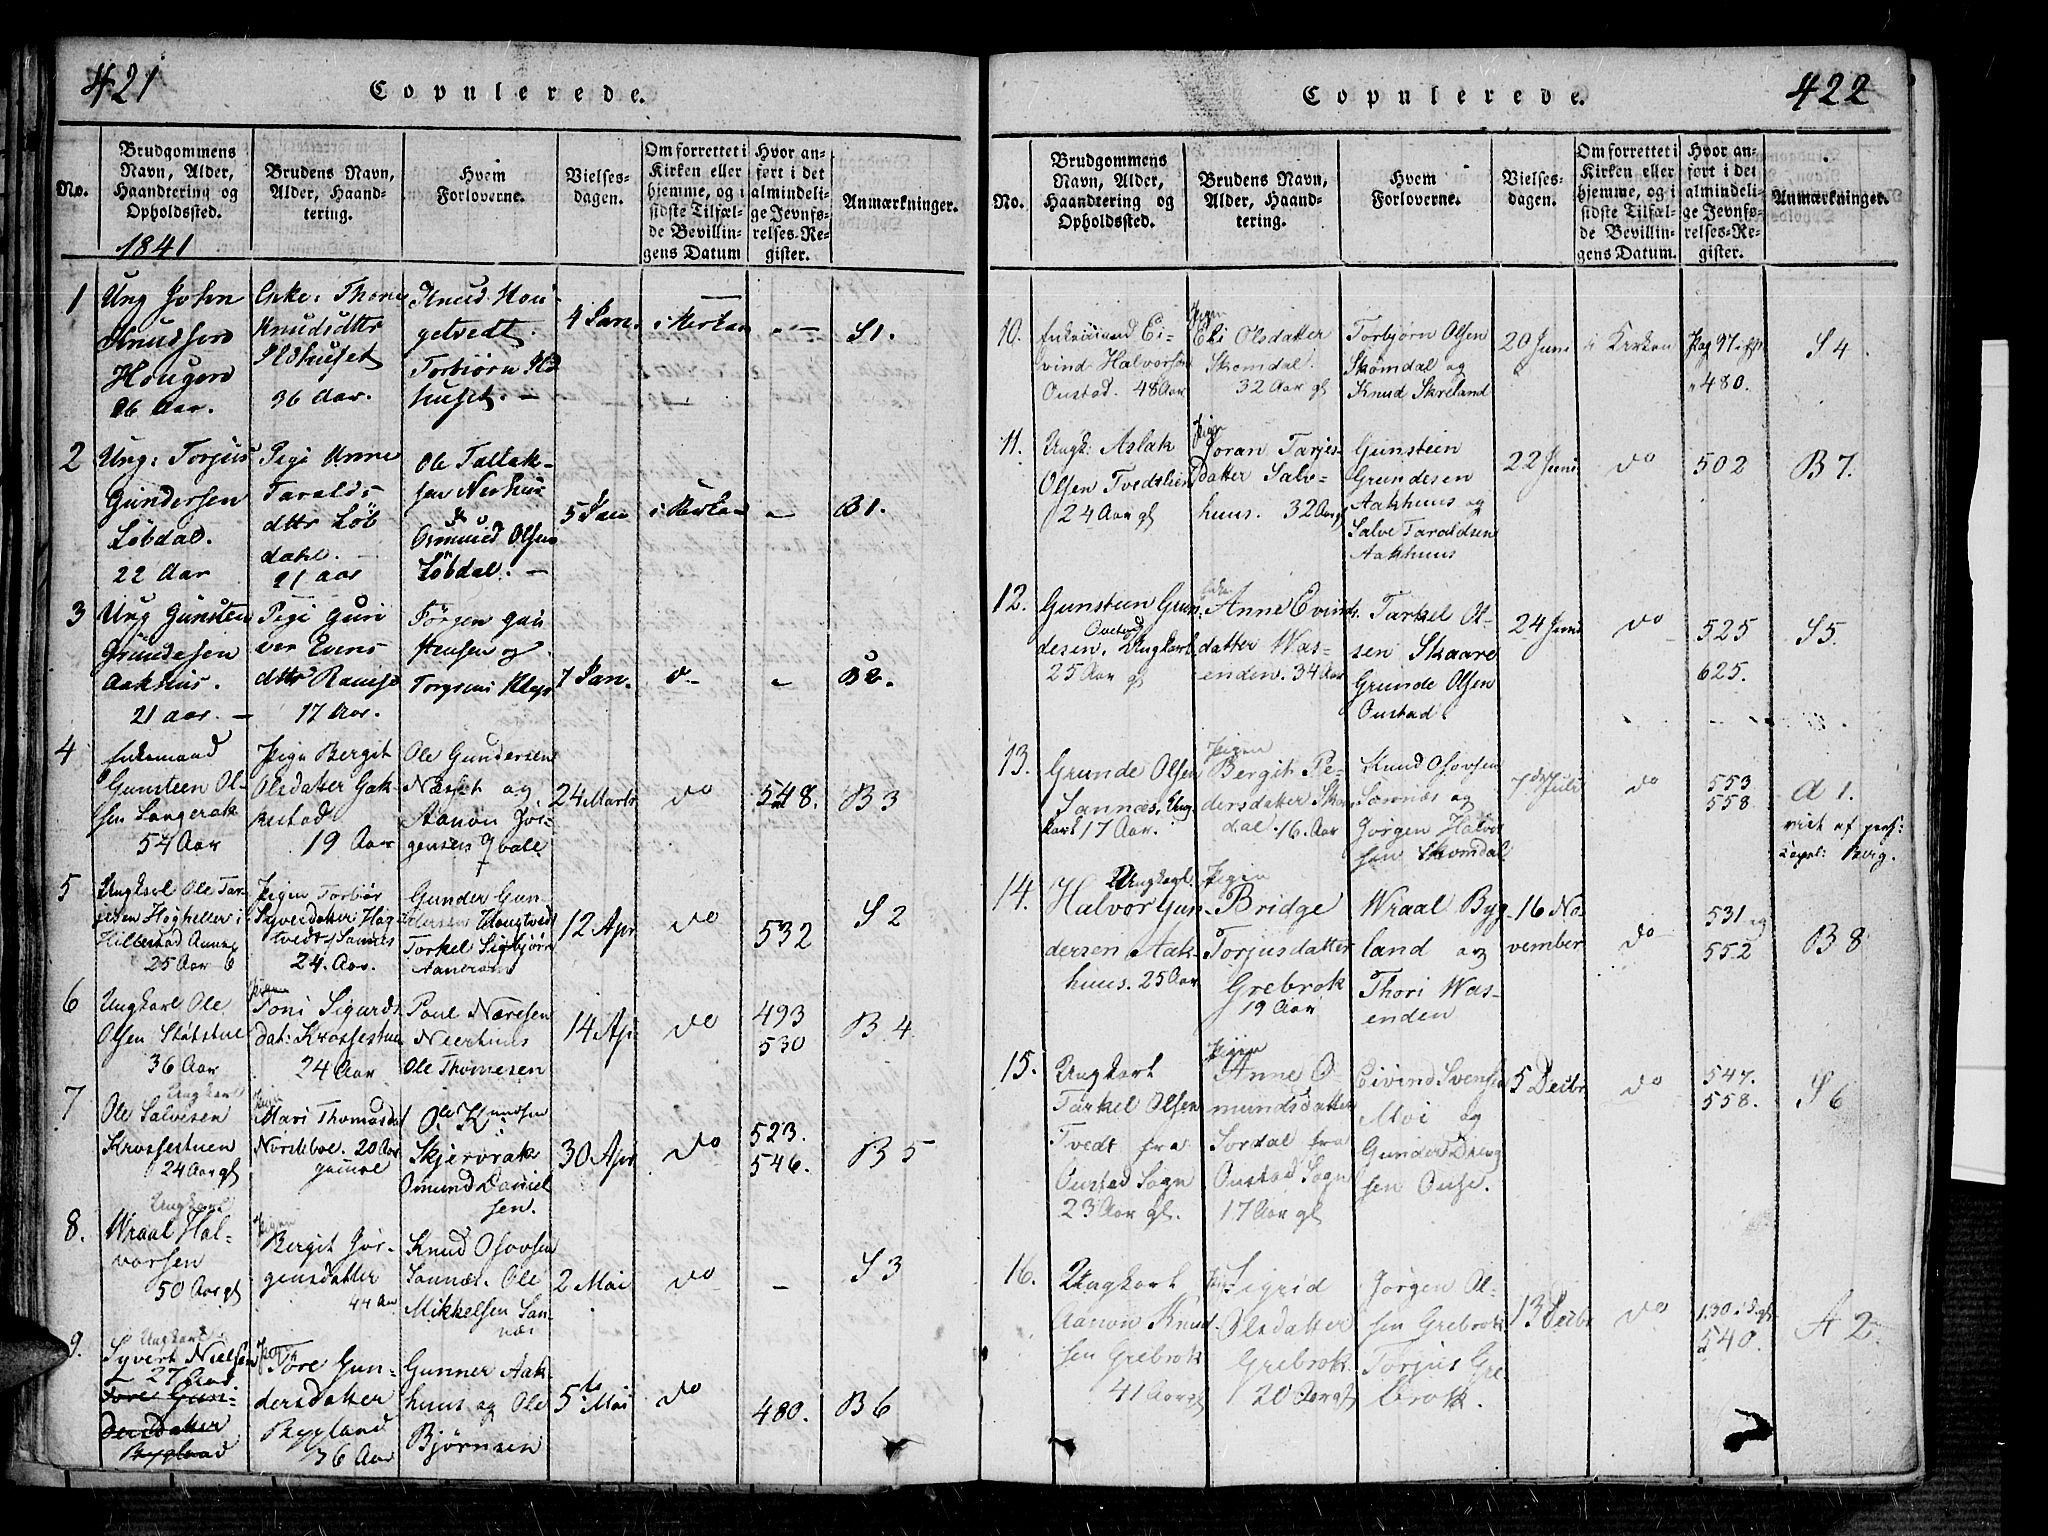 421
Copulerede.
No.
Brudgommens
Navn, Alder,
Haandtering og
Opholdssted.
1841
Brudens Navn,
Alder, Haand-
tering.
Hvem
Forloverne.
Vielses-
dagen.
Om forrettet i
Kirken eller
hjemme, og i
sidste Tilfæl-
de Bevillin-
gens Datum
Hvor an-
ført i det
almindeli-
ge Jevnfø-
relses-Re-
gister.
Anmærkninger.
1
Ung John
Knudsen
Hougen
26 Aar.
Enke: Thone
Knudsdttr
Ildhuset
36 Aar.
Knud Hou-
getvedt.
Torbiørn Ild
huset. -
4 Jan.
i Kirken
S 1.
2
Ung: Torjus
Gundersen
Løbdal.
22 Aar
Pige Anne
Taralds-
dttr Løb
dahl. -
21 Aar
Ole Tallak-
sen Neshuus
Osmund Olsen
Løbdal. -
5 Jan
i Kirken
B 1.
3
Ung Gunsten
Grundesen
Aakhus.
21 aar. -
Pige Guri
dttr
17 Aar.
Jørgen Gun
stensen og
7 Jan.
do
B 2.
4
Enkemand
Gunsteen Ol-
sen Langerak
54 Aar
Pige Bergit
Olsdatter Gak-
kestad
19 Aar
Ole Gundersen
Næset og
Aanon Jør-
gensen
24 Marts
do
548.
B 3
5
Ungkarl Ole Tar-
jesen
25 Aar
Pigen Torbiør
Syverdatter Haug-
tvedt
24. Aar.
Gunder Gun-
dersen Haugtvedt
Torkel Sigbjørn
12 Apr
do
532
S 2
6
Ungkarl Ole
Olsen
36 Aar
Pigen
Toni Sigurds
dat: Krossestuen
24 Aar
Poul Næresen
Ole Thomesen
14 Apr
do
493
530
B 4.
7
Ungkarl
Ole Salvesen
Krossestuen
24 Aar gl
Pigen
Mari Thomasdat
Norsteboe. 20 Aar
gamel
Ole Knudsen
Skjerøirak
Omund Daniel
sen.
30 Apr
do
523.
546.
B 5
8.
Ungkarl
Wraal Hal-
vorsen
50 Aar gl
Pigen
Bergit Jør-
gensdatter
44 Aar
Knud Osovsen
Sannæs. Ole
Mikkelsen San-
næs
2 Mai
do
-
S 3
9.
Ungkarl
Syvert Nielsen
27 Aar
Tore Gun-
dersdatter
Bygland
Pige
Tore Gun-
dersdatter
Bygland
36 Aar
Gunner Aak-
huus og Ole
Bjørnsen
5te Mai
do
480.
B 6
422
Copulerede.
No.
Brudgommens
Navn, Alder,
Haandtering og
Opholdssted.
Brudens Navn,
Alder, Haand-
tering.
Hvem
Forloverne.
Vielses-
dagen.
Om forrettet i
Kirken eller
hjemme, og i
sidste Tilfæl-
de Bevillin-
gens Datum.
Hvor an-
ført i det
almindeli-
ge Jevnfø-
relses-Re-
gister.
Anmærkninger.
10.
Enkemand Ei-
vind Halvorsen
Oustad. 48 Aar
Pigen
Eli Olsdatter
Skomdal.
32 Aar gl
Torbjørn Olsen
Skomdal og
Knud Skreland
20 Juni
i Kirken
Pag 97
480.
S 4.
11.
Ungk: Aslak
Olsen Tvedtlien
24 Aar gl
Pige
Joran Tarjes-
datter Salve-
huus. 32 Aar gl
Gunstein
Grundesen
Aakhuus og
Salve Taraldsen
Aakhuus
22 Juni
do
502
B 7.
12.
Gunsteen Grun-
Oustad
desen. Ungkarl
25 Aar gl
Anne Evinds-
datter Was-
enden. 34 Aar
Tarkel Ol-
sen Skaare
Grunde Olsen
Oustad.
24 Juni
do
525
625.
S 5
13.
Grunde Olsen
Sannæs. Ung-
karl 17 Aar.
Pigen
Bergit Pe-
dersdatter Skom
dal. 16. Aar
Knud Osovsen
Sannæs og
Jørgen Halvor
sen Skomdal
7de Juli
do
553
558.
A 1.
viet af pers:
Capel: Berg.
14.
Ungkarl.
Halvor Gun-
dersen Aak-
huus. 25 Aar
Pigen
Bridge
Torjusdatter
Grebrok
19 Aar
Wraal Byg-
land og
Thori Was-
enden
16 No-
vember
do
531 og
552
B 8
15.
Ungkarl
Tarkel Olsen
Tvedt fra
Oustad Sogn
23 Aar gl.
Pigen
Anne O-
mundsdatter
Sordal fra
Oustad Sogn
17 Aar gl
Eivind Svensen
Moi og
Gunder Dreng
sen Ouse.
5 Decbr
do
547.
558.
S 6
16.
Ungkarl
Aanon Knud-
sen Grebrok
41 Aar gl
Sigrid
Olsdatter
Grebrok
20 Aar gl
Jørgen Ol-
sen Grebrok
Torjus Gre
brok.
13 Decbr
do
130.
540.
A 2.